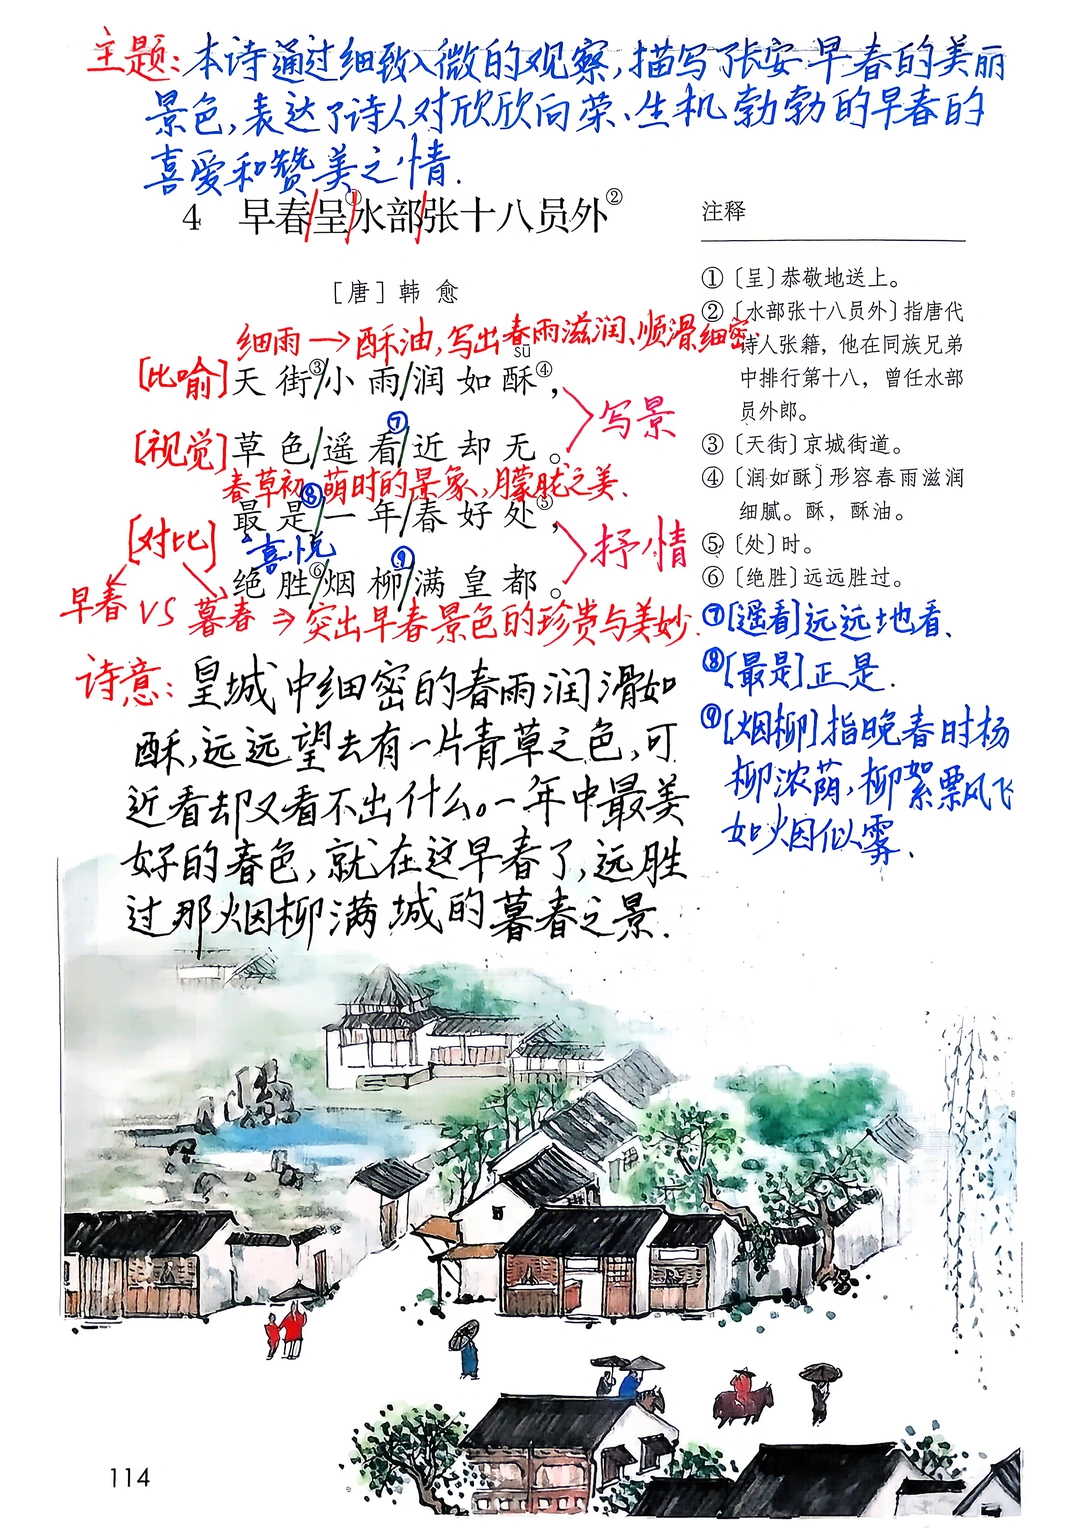 主题:本诗通过细致入微的观察,描写了长安早春的美丽
景色,表达了诗人对欣欣向荣、生机勃勃的早春的
喜爱和赞美之情.
4 早春/呈①/水部/张十八员外②
[唐] 韩愈
细雨→酥油,写出春雨滋润、顺滑细密.
sū
[比喻]天街③/小雨/润如酥④,
写景
[视觉]草色/遥看⑦/近却无。
春草初萌时的景象,朦胧之美.
最是⑧/一年/春好处⑤,
[对比]
喜悦
抒情
绝胜⑥/烟柳⑨/满皇都。
早春 VS 暮春⇒突出早春景色的珍贵与美妙.
诗意:皇城中细密的春雨润滑如
酥,远远望去有一片青草之色,可
近看却又看不出什么。一年中最美
好的春色,就在这早春了,远胜
过那烟柳满城的暮春之景.
注释
①〔呈〕恭敬地送上。
②〔水部张十八员外〕指唐代
诗人张籍,他在同族兄弟
中排行第十八,曾任水部
员外郎。
③〔天街〕京城街道。
④〔润如酥〕形容春雨滋润
细腻。酥,酥油。
⑤〔处〕时。
⑥〔绝胜〕远远胜过。
⑦[遥看]远远地看、
⑧[最是]正是.
⑨[烟柳]指晚春时杨
柳浓荫,柳絮飘风飞
如烟似雾.
114